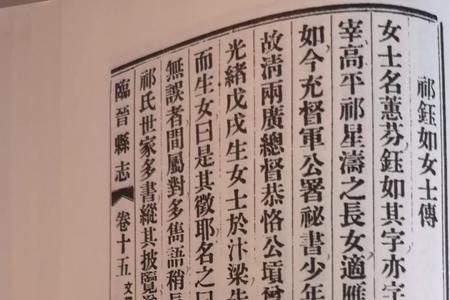 祁鈺如女士傳
女士名蕙芬鈺如其字亦字
宰高平祁星濤之長女適匯
如今充督軍公署祕書少年
故清兩廣總督恭恪公𡎴曾
光緒戊戌生女士於汴梁先
而生女曰是其徵耶名之曰
無誤者間屬對多雋語稍長
祁氏世家多書縱其披覽
臨晉縣志 卷十五 文